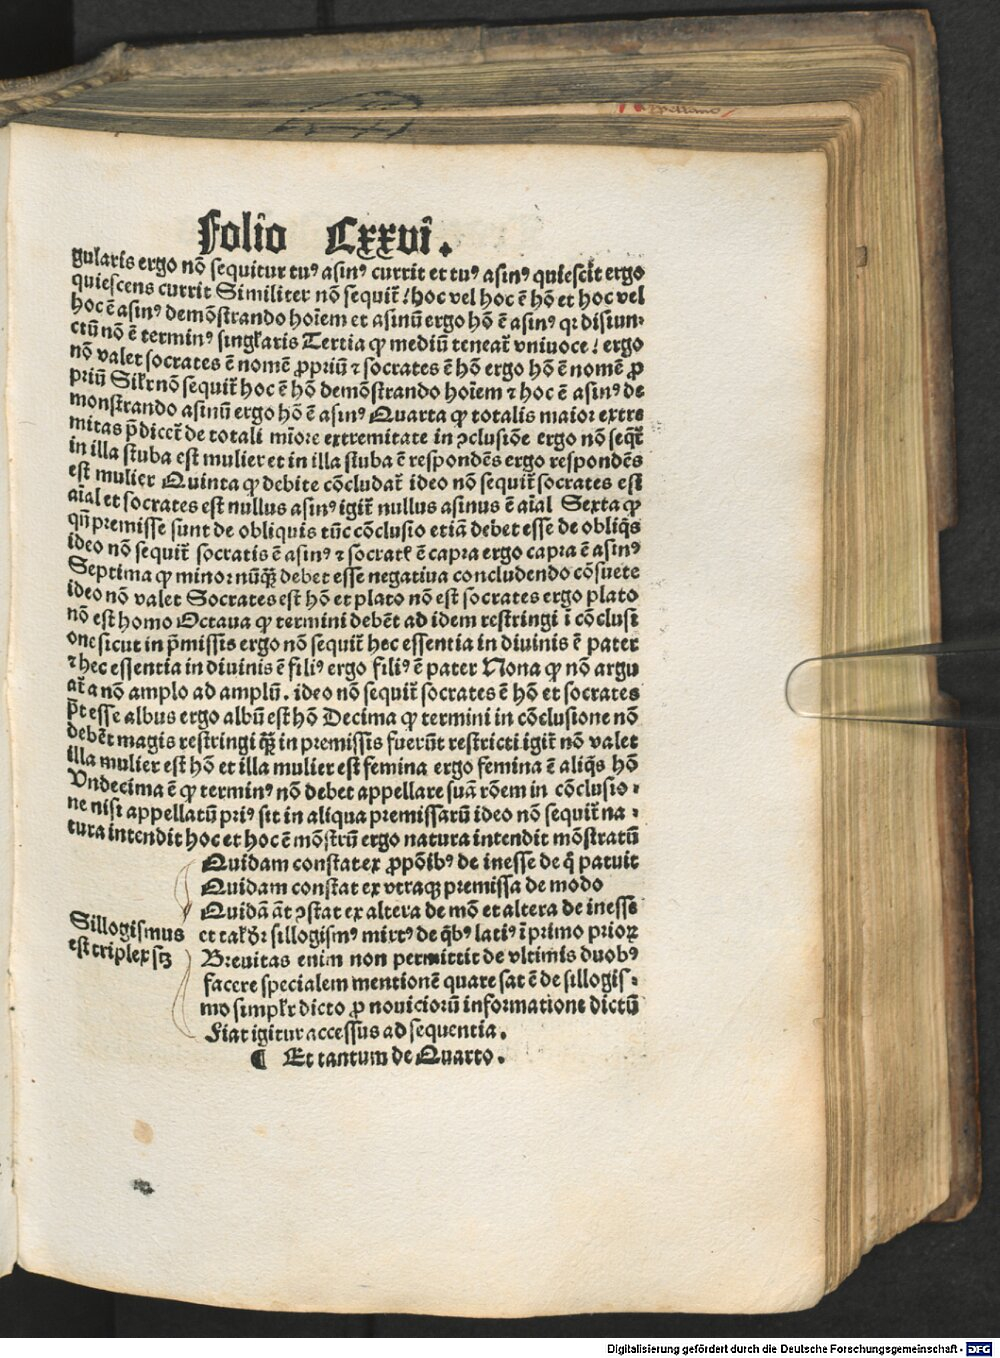 Appellano
Folio Cxxvi.
gularis ergo nō sequitur tuꝰ asinꝰ currit et tuꝰ asinꝰ quiescit ergo
quiescens currit Similiter nō sequit̄ / hoc vel hoc ē hō et hoc vel
hoc ē asinꝰ demōstrando hoīem et asinū ergo hō ē asinꝰ qꝛ disiun⸗
ctū nō ē terminꝰ singl̄aris Tertia ꝙ mediū teneat̄ vniuoce / ergo
nō valet socrates ē nomē ꝓpriū ⁊ socrates ē hō ergo hō ē nomē ꝓ
priū Sil̄r nō sequit̄ hoc ē hō demōstrando hoīem ⁊ hoc ē asinꝰ de
monstrando asinū ergo hō ē asinꝰ Quarta ꝙ totalis maior extre
mitas p̄dicet̄ de totali mīore extremitate in ꝯclusiōe ergo nō seqt̄
in illa stuba est mulier et in illa stuba ē respondēs ergo respondēs
est mulier Quinta ꝙ debite cōcludat̄ ideo nō sequit̄ socrates est
aīal et socrates est nullus asinꝰ igit̄ nullus asinus ē aīal Sexta ꝙ
qn̄ premisse sunt de obliquis tūc cōclusio etiā debet esse de obliqꝭs
ideo nō sequit̄ socratis ē asinꝰ ⁊ socratꝭ ē capra ergo capra ē asinꝰ
Septima ꝙ minor nūqꝫ debet esse negatiua concludendo cōsuete
ideo nō valet Socrates est hō et plato nō est socrates ergo plato
nō est homo Octaua ꝙ termini debēt ad idem restringi ī cōclusi
one sicut in p̄missis ergo nō sequit̄ hec essentia in diuinis ē pater
⁊ hec essentia in diuinis ē filiꝰ ergo filiꝰ ē pater Nona ꝙ nō argu
at̄ a nō amplo ad amplū. ideo nō sequit̄ socrates ē hō et socrates
p̄t esse albus ergo albū est hō Decima ꝙ termini in cōclusione nō
debēt magis restringi qꝫ in premissis fuerūt restricti igit̄ nō valet
illa mulier est hō et illa mulier est femina ergo femina ē aliqꝭs hō
Vndecima ē ꝙ terminꝰ nō debet appellare suā rōem in cōclusio⸗
ne nisi appellatū priꝰ sit in aliqua premissarū ideo nō sequit̄ na⸗
tura intendit hoc et hoc ē mōstrū ergo natura intendit mōstratū
Quidam constat ex ꝓpōibꝰ de inesse de q̄ patuit
Quidam constat ex vtraqꝫ premissa de modo
Quidā āt ꝯstat ex altera de mō et altera de inesse
Sillogismus
est triplex sꝫ
et tal̄ dꝛ sillogismꝰ mixtꝰ de qꝭbꝰ latiꝰ ī primo prioꝝ
Breuitas enim non permittit de vltimis duobꝰ
facere specialem mentionē quare sat ē de sillogis⸗
mo simpl̄r dicto ꝓ nouiciorū informatione dictū
Fiat igitur accessus ad sequentia.
¶ Et tantum de Quarto.
Digitalisierung gefördert durch die Deutsche Forschungsgemeinschaft - DFG